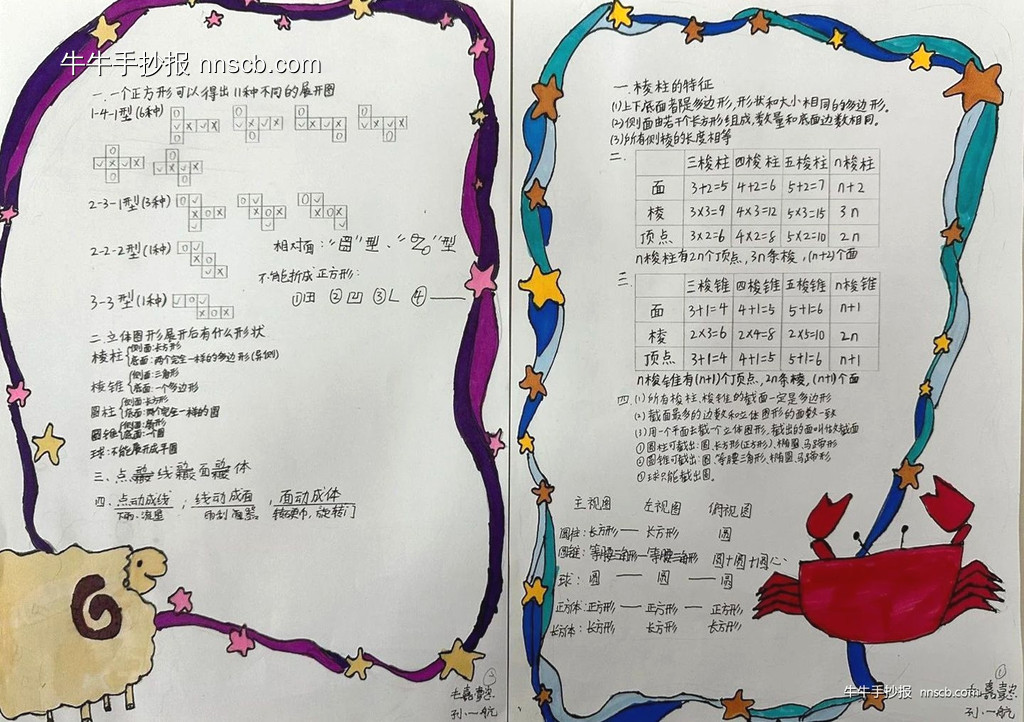 牛牛手抄报 nnscb.com
一.一个正方形可以得出11种不同的展开图
1-4-1型(6种)
2-3-1型(3种)
2-2-2型(1种)
相对面:"型、"Z"型
不能折成正方形:
① 田 ② 凹 ③ L ④ ——
3-3型(1种)
二.立体图形展开后有什么形状
棱柱{侧面:长方形
底面:两个完全一样的多边形
棱锥{侧面:三角形
底面:一个多边形
圆柱{侧面:长方形
底面:两个完全一样的圆
圆锥{侧面:扇形
底面:一个圆
球:不能展开成平面
三、点 线 面 体
四.点动成线;线动成面,面动成体
旋转门
孙一航
一.棱柱的特征
(1)上下底面都是多边形,形状和大小相同的多边形.
(2)侧面由若干个长方形组成,数量和底面边数相同.
(3)所有侧棱的长度相等
二.
三梭柱 四梭柱 五梭柱 n梭柱
面 3+2=5 4+2=6 5+2=7 n+2
棱 3×3=9 4×3=12 5×3=15 3n
顶点 3×2=6 4×2=8 5×2=10 2n
n梭柱有2n个顶点,3n条梭,(n+2)个面
三.
三梭锥 四梭锥 五梭锥 n梭锥
面 3+1=4 4+1=5 5+1=6 n+1
棱 2×3=6 2×4=8 2×5=10 2n
顶点 3+1=4 4+1=5 5+1=6 n+1
n梭锥有(n+1)个顶点,2n条棱,(n+1)个面
四.(1)所有梭柱、梭锥的截面一定是多边形
(2)截面最多的边数和立体图形的面数一致
(3)用一个平面去截一个立体图形,截出的面叫做截面
①圆柱可截出:圆、长方形(正方形)、椭圆、马蹄形
②圆锥可截出:圆、等腰三角形、椭圆、马蹄形
③球只能截出圆.
主视图 左视图 俯视图
圆柱:长方形 — 长方形 圆
圆锥:等腰三角形—等腰三角形 圆+圆心
球:圆 — 圆 — 圆
正方体:正方形 — 正方形 — 正方形
长方体:长方形 长方形 长方形
①
孙一航
牛牛手抄报 nnscb.com